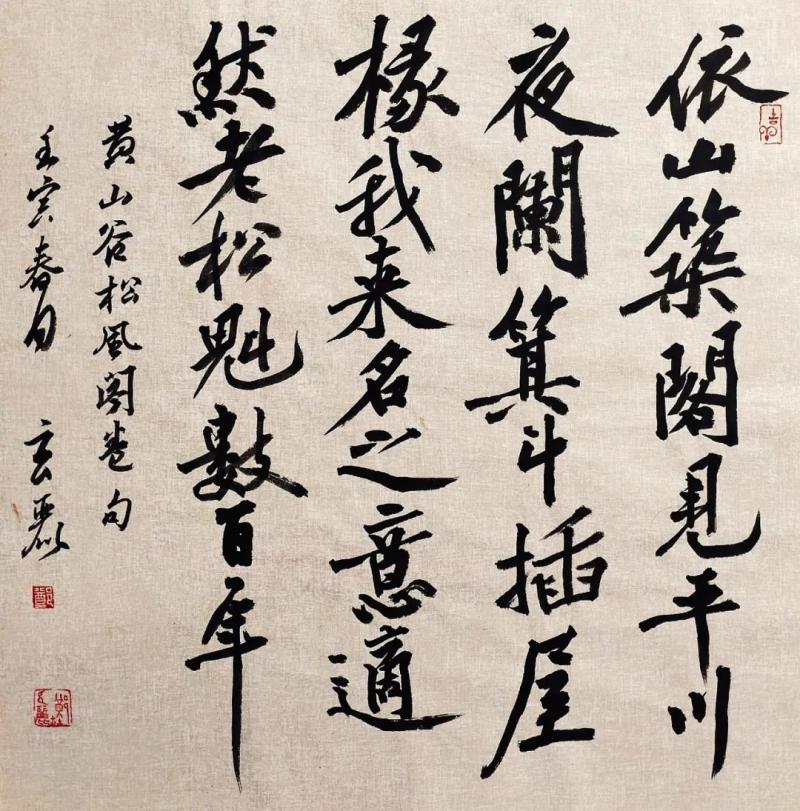 依山築閣見平川
夜闌箕斗插屋
椽我来名之意適
然老松魁數百年
黄山谷松風閣卷句
壬寅春月
玄麗
鄭